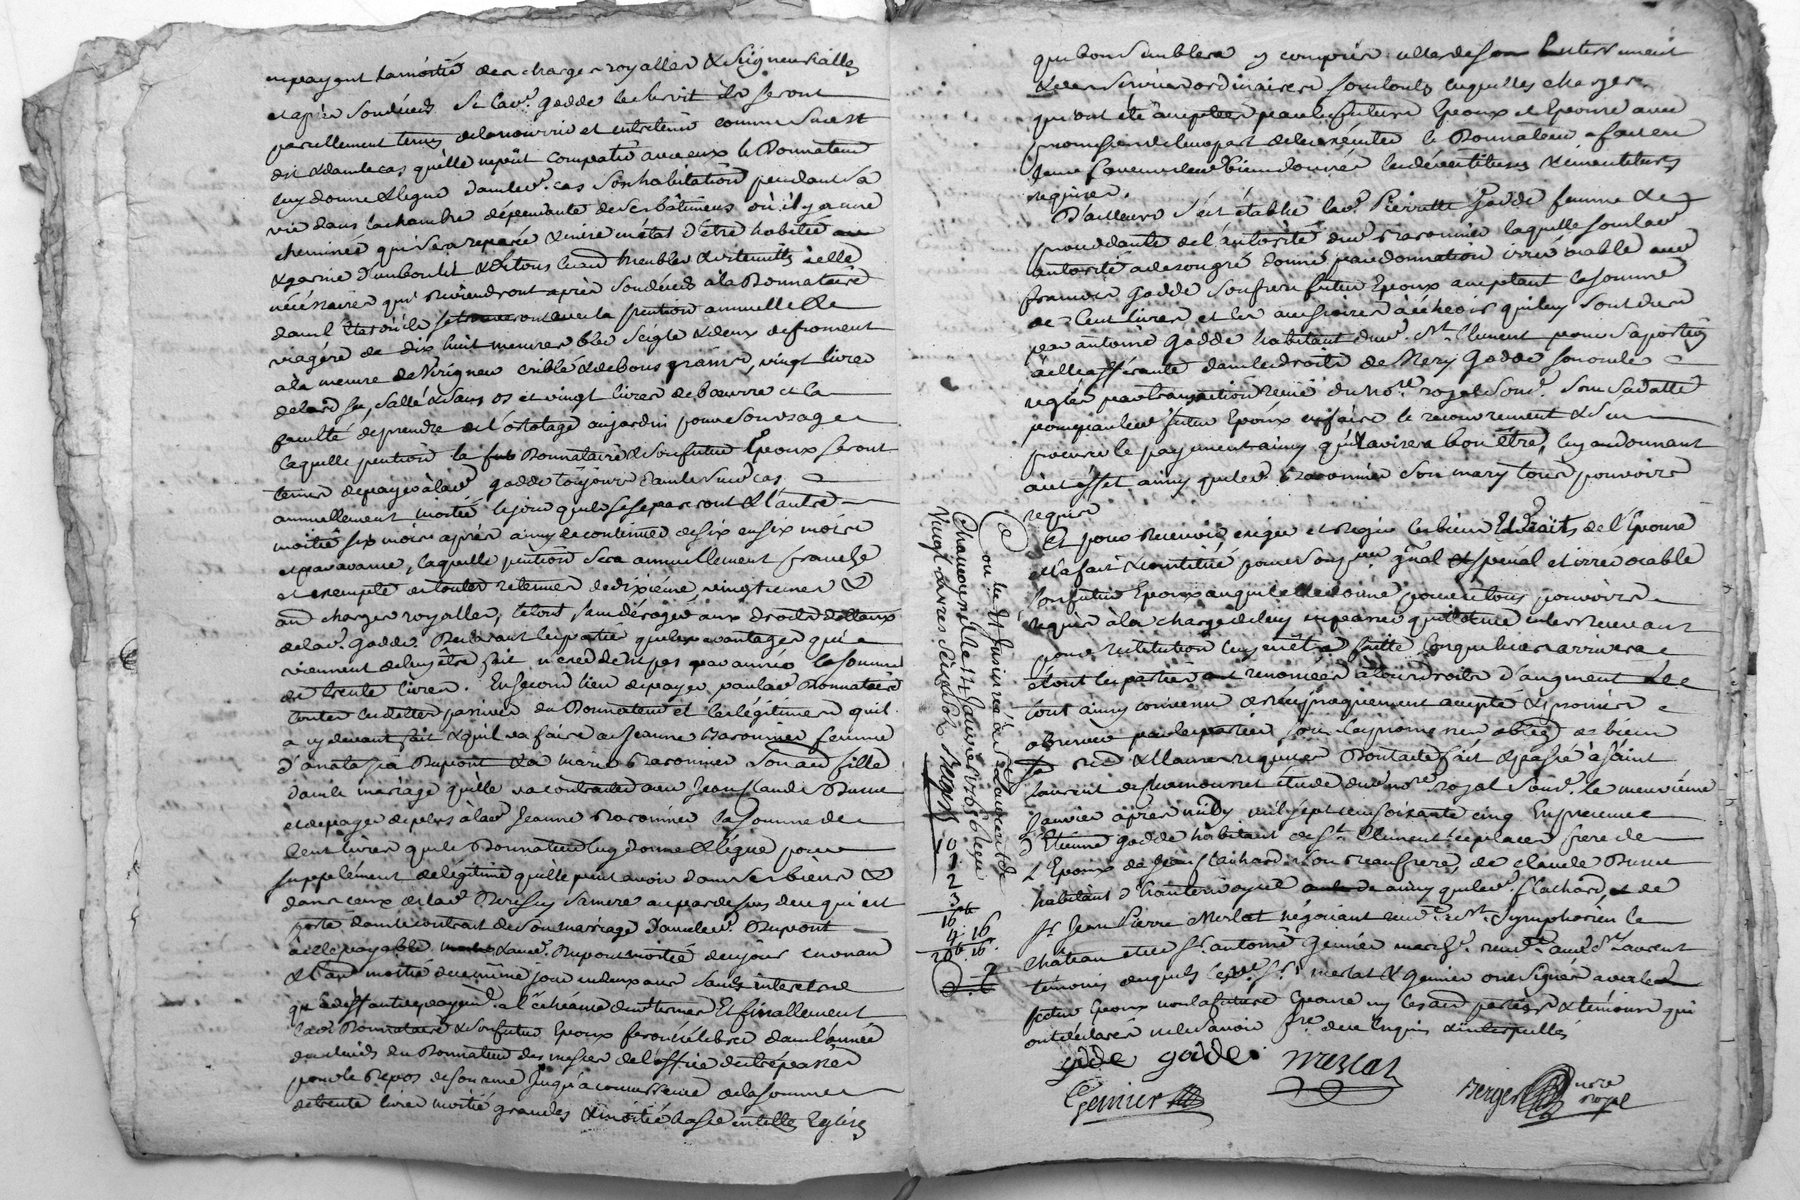 en payant la moitié des charges royalles & seigneurialles
et après son décéds si lad. Gadde le survit ils seront
pareillement tenus de la nourrir et entretenir comme sus est
dit & dans le cas qu'elle ne peût compatir avec eux le Donnateur
luy donne & legue dans led. cas son habitation pendant sa
vie dans la chambre dépendante de ses bâtimens où il y a une
cheminée qui sera reparée & mise en état d'être habitée
& garnie d'un bon lit & de tous les aud. meubles & ustencils à elle
nécéssaires qui reviendront après son décéds à la Donnataire
dans l'état où ils se trouveront avec la pention annuelle &
viagére de dix huit mesures bled seigle & deux de froment
à la mesure de Virigneu criblé & de bons grains, vingt livres
de lard sec, sallé & sans os et vingt livres de beurre et la
faculté de prendre de l'ostolage au jardin pour son usage
laquelle pention la Donnataire & son futur Epoux seront
tenus de payer à lad. Gadde toujours dans le susd. cas
annuellement moitié le jour qu'ils se separeront & l'autre
moitié six mois après ainsy à continuer de six en six mois
et par avance, laquelle pention sera annuellement franche
et exempte de toutes retenues de dixiéme, vingtiemes &
aud. charges royalles, le tout sans déroger aux droits dottaux
de lad. Gadde. Declarant les parties que les avantages qui
viennent de luy être fait n'excedent pas par année la somme
de trente livres. En second lieu de payer par lad. Donnataire
toutes les dettes passives du Donnateur et les légitimes qu'il
a cy devant fait & qu'il va faire a Jeanne Baronnier femme
d'Anatase Dupont & à Marie Baronnier son aud. fille
dans le mariage qu'elle va contracter avec Jean Claude Dumas
et de payer de plus à lad. Jeanne Baronnier la somme de
cent livres que le Donnateur luy donne & légue pour
supplément de légitime qu'elle peut avoir dans ses biens &
dans ceux de lad. sa mere au par dessus de ce qui est
porté dans le contrat de son mariage d'avec led. Dupont
à elle payable & aud. Dupont moitié du jour en un an
& l'autre moitié du même jour en deux ans sans interets
qu'à deffaut de payement à l'échéance d'un terme Et finallement
lad. Donnataire & son futur Epoux feront célébrer dans l'année
du décéds du Donnateur des messes de l'office des trépassés
pour le repos de son ame jusqu'à concurrence de la somme
de trente livres moitié grandes & moitié basses en telles Eglises
que bon semblera y compris celles de son Enterrement
& des services ordinaires sous toutes lesquelles charges
qui ont été acceptées par les futurs Epoux et Epouse avec
promesse de leur part de les exécuter le Donnateur
requises.
D'ailleurs s'est établie lad. Pierrette Gadde femme &
procedante de l'autorité dud. Baronnier laquelle sous lad.
autorité a de son gré donné par donnation irrévocable aud.
François Gadde son frere futur Epoux acceptant la somme
de cent livres et les accessoires à échoir qui luy sont dus
par Antoine Gadde habitant dud. St. Clement pour sa portion
à elle afférante dans les droits de Mery Gadde son oncle
réglés par transaction reçüe du No.re royal sous.é sous sa datte
pour par led. futur Epoux en faire le recouvrement &
poursuivre le payement ainsy qu'il avisera bon être, luy en donnant
à cet effet ainsy que led. Baronnier son mary tous pouvoirs
requis
Et pour recevoir, exiger et regir les biens Et droits de l'Epouse
elle a fait & constitué pour son p.eur g.nal & special et irrévocable
son futur Epoux auquel elle donne pour ce tous pouvoirs
requis à la charge de luy en passer quittance en les recevant
pour restitution luy en être faitte lorsque lieu arrivera
et ont les parties renoncées à tous droits d'augment
tout ainsy convenu & réciproquement accepté & promis
observer par les parties sous leurs promesses oblig. de biens
Dont acte fait & passé à Saint
Laurent de Chamousset étude dud. no.re royal sous.é le neuviéme
Janvier après midy mil sept cens soixante cinq En presence
d'Etienne Gadde habitant de St. Clement les places frere de
l'Epoux de Jean Flachard son beau frere, de Claude Dumas
habitant d'hauterivoire ainsy que led. Flachard & de
Sr Jean Pierre Merlat négociant de St. Symphorien le
château et Sr Antoine Genier march.d aud. St. Laurent
témoins desquels led. Srs Merlat & Genier ont signés avec led.
futur Epoux non la future Epouse ny les aud. parties & témoins qui
ont déclarés ne le savoir de ce enquis & interpellés
gadde gadde merlat
Genier
Berger no.re royal
Controllé & Insinué à St Laurent de
Chamousset le 14 Janvier 1765 Reçu
vingt livres seize sols Berger